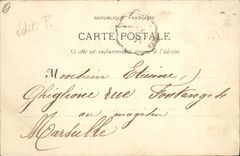 édit. T.
RÉPUBLIQUE FRANÇAISE
CARTE POSTALE
Ce côté est exclusivement réservé à l'adresse
Monsieur Etienne
Ghiglione rue Fontange
au magasin
Marseille